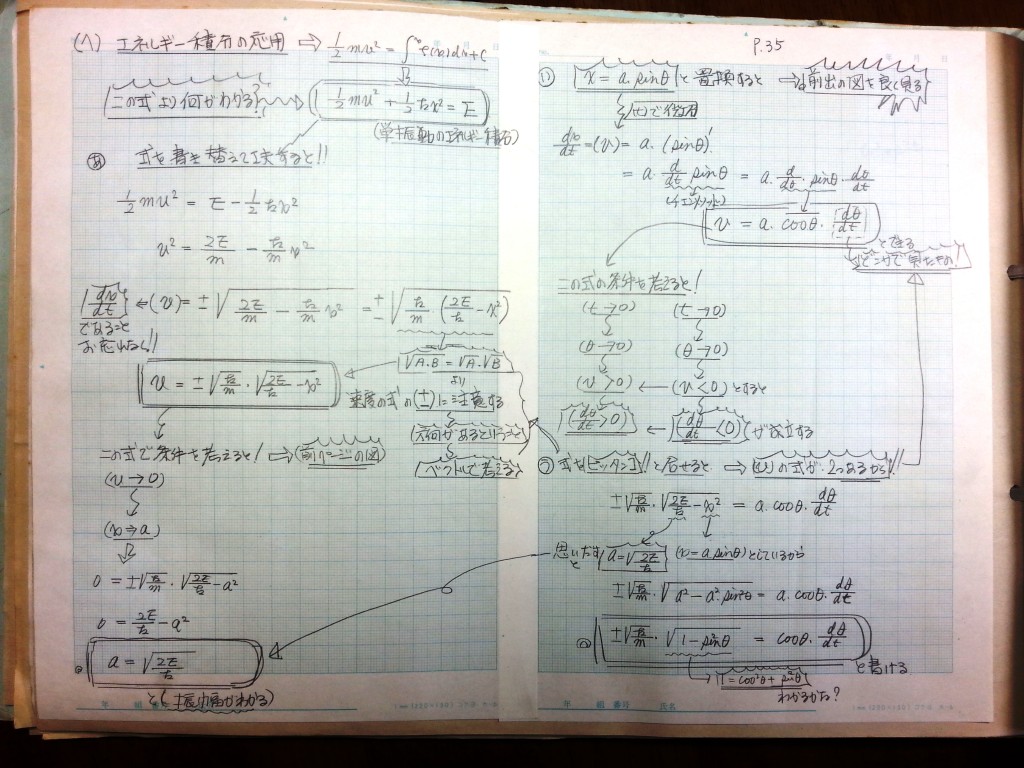 (八) エネルギー積分の応用 ⇒ 1/2 mv² = ∫f(x)dx + C
この式より何がわかる?
1/2 mv² + 1/2 kx² = E
(単振動のエネルギー積分)
あ 式を書き替えて工夫すると!!
1/2 mv² = E - 1/2 kx²
v² = 2E/m - k/m x²
dx/dt ←(v) = ±√(2E/m - k/m x²) = ±√(k/m・(2E/k - x²))
であること
お忘れなく!!
√A・B = √A・√B
より
v = ±√(k/m)・√(2E/k - x²)
速度の式の(±)に注意する
何があるということ
ベクトルで考える
この式で条件を考えると! ⇒ 前ページの図
(v → 0)
(x ⇒ a)
0 = ±√(k/m)・√(2E/k - a²)
0 = 2E/k - a²
a = √(2E/k)
と(振巾がわかる)
年 組 番号
P.35
い x = a・sinθ と置換すると → 前出の図を良く見る
(t)で微分
dx/dt = (v) = a・(sinθ)'
= a・d/dt sinθ = a・d/dθ・sinθ・dθ/dt
v = a・cosθ・dθ/dt
とできる
どこかで見たもの!
この式の条件を考えると!
(t → 0) (t → 0)
(θ → 0) (θ → 0)
(v > 0) ← (v < 0) とすると
(dθ/dt > 0) ← (dθ/dt < 0) が成立する
う 式を ピッタンコ!! と合せると → (v)の式が2つあるから!!
±√(k/m)・√(2E/k - x²) = a・cosθ・dθ/dt
思いだすと a = √(2E/k) (x = a sinθ)としているから
±√(k/m)・√(a² - a²・sin²θ) = a・cosθ・dθ/dt
±√(k/m)・√(1 - sinθ) = cosθ・dθ/dt
と書ける
1 = cos²θ + sin²θ
わかるかな?
年 組 番号 氏名